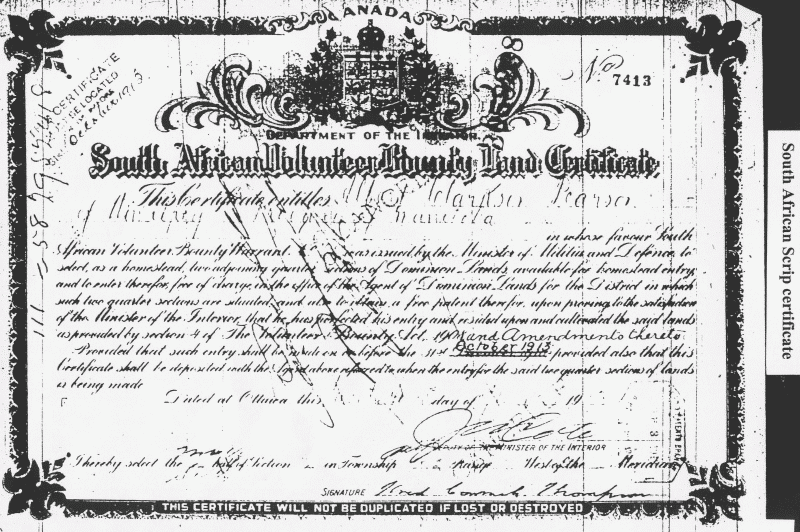 CANADA
No 7413
CERTIFICATE
DEPARTMENT OF THE INTERIOR
South African Volunteer Bounty Land Certificate
This Certificate entitles
of Winnipeg Manitoba
in whose favour South
African Volunteer Bounty Warrant was issued by the Minister of Militia and Defence, to
select, as a homestead, two adjoining quarter sections of Dominion Lands available for homestead entry
and to enter therefor, free of charge, in the office of the Agent of Dominion Lands for the District in which
such two quarter sections are situated, and also to obtain a free patent therefor, upon proving to the satisfaction
of the Minister of the Interior, that he has perfected his entry and resided upon and cultivated the said lands
as provided by section 4 of The Volunteer Bounty Act, 1908 and Amendments thereto
Provided that such entry shall be made on or before the 31st October 1913 provided also that this
Certificate shall be deposited with the Agent above referred to when the entry for the said two quarter sections of lands
is being made
Dated at Ottawa this day of 19
MINISTER OF THE INTERIOR
I hereby select the half of Section in Township Range West of the Meridian
SIGNATURE Thompson
THIS CERTIFICATE WILL NOT BE DUPLICATED IF LOST OR DESTROYED
South African Scrip certificate